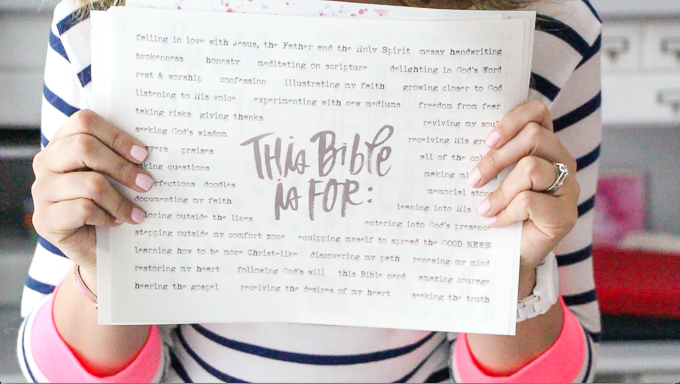 falling in love with Jesus, the Father and the Holy Spirit messy handwriting
brokenness honesty meditating on scripture delighting in God's Word
rest & worship confession illustrating my faith growing closer to God
listening to His voice experimenting with new mediums freedom from fear
taking risks giving thanks reviving my soul
seeking God's wisdom receiving His gr
ayers praises all of the col
king questions making mi
erfections doodles memorial ston
documenting my faith leaning into His
loring outside the lines entering into God's presence
This Bible
is for:
stepping outside my comfort zone equipping myself to spread the GOOD NEWS!
learning how to be more Christ-like discovering my path renewing my mind
restoring my heart following God's will this Bible nerd amazing courage
hearing the gospel receiving the desires of my heart seeking the truth